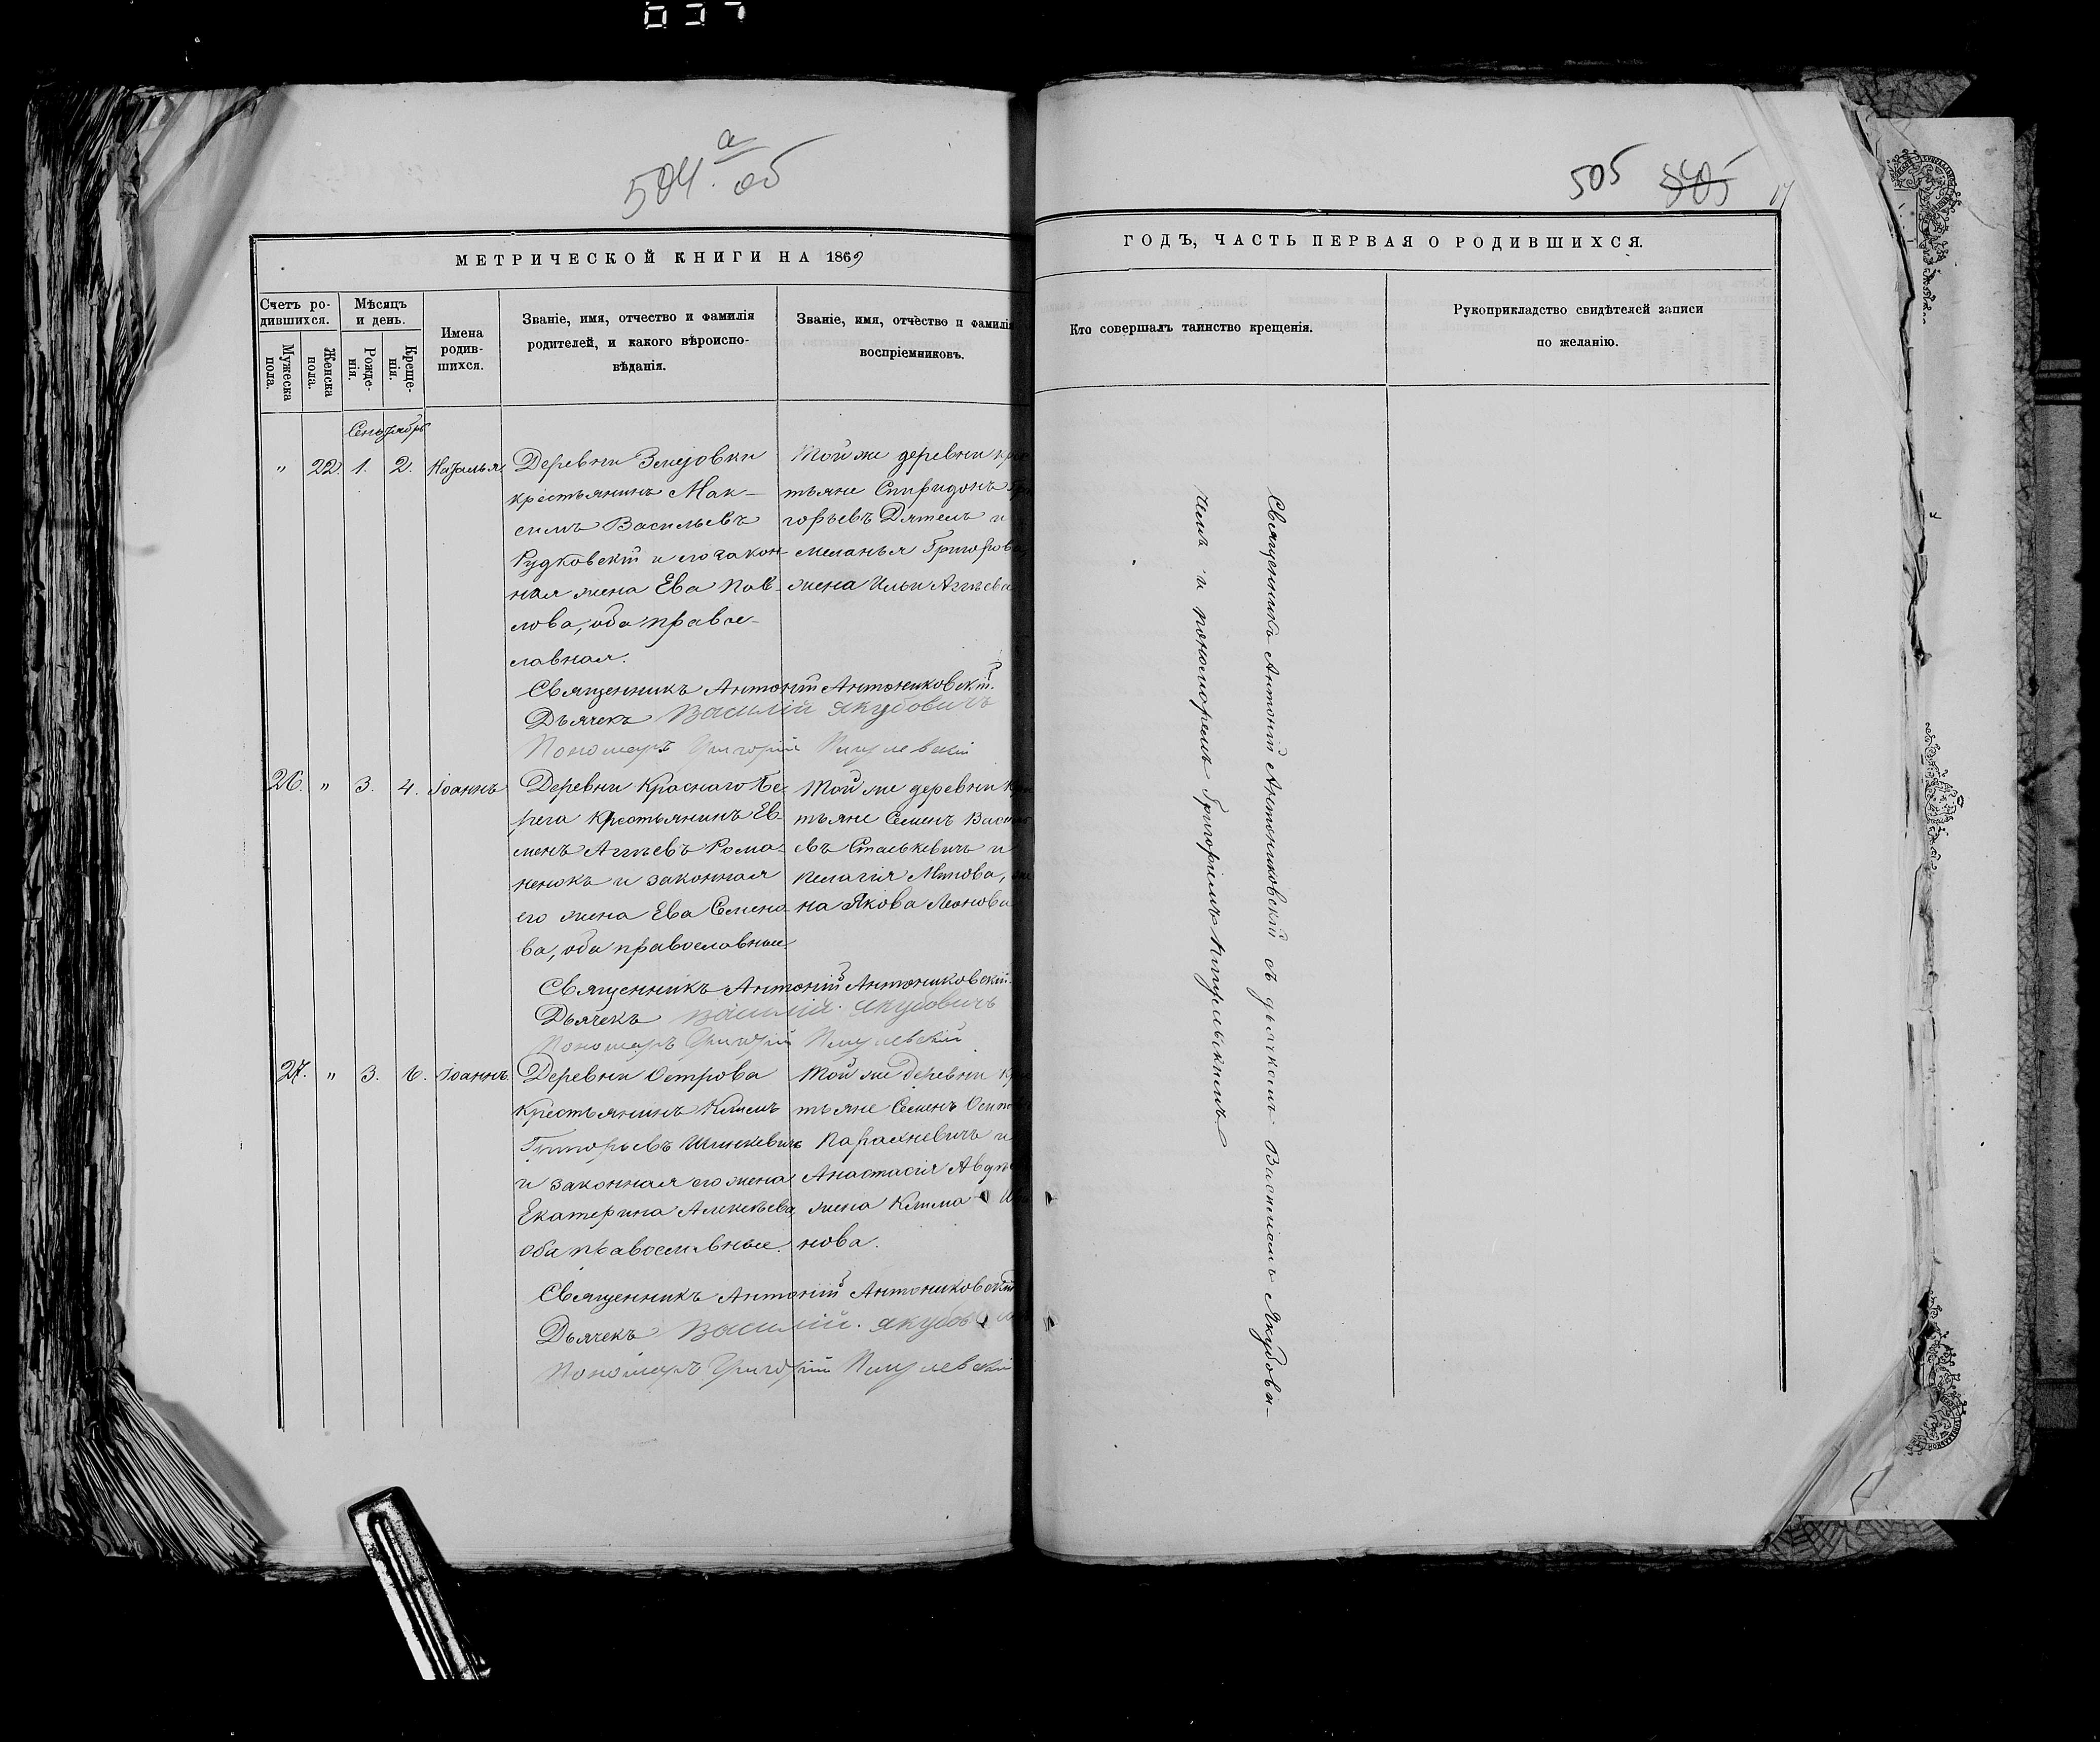 037
504 а об
505 505 17
МЕТРИЧЕСКОЙ КНИГИ НА 1869
ГОДЪ, ЧАСТЬ ПЕРВАЯ О РОДИВШИХСЯ.
Счетъ ро-
дившихся.
Мужеска
пола.
Женска
пола.
Мѣсяцъ
и день.
Рожде-
нія.
Креще-
нія.
Имена
родив-
шихся.
Званіе, имя, отчество и фамилія
родителей, и какого вѣроиспо-
вѣданія.
Званіе, имя, отчество и фамилія
воспріемниковъ.
Кто совершалъ таинство крещенія.
Рукоприкладство свидѣтелей записи
по желанію.
Сентябрь
" 22. 1. 2. Наталья
Деревни Змеѣовки
крестьянинъ Мак-
симъ Васильевъ
Рудковскій и его закон-
ная жена Ева Пав-
лова, оба право-
славная.
Той же деревни крес
тьяне Спиридонъ Гри
горьевъ Дятелъ и
Меланья Григорова
жена Ильи Агѣева
Священникъ Антоній Антониковскій.
Дьячекъ Василій Якубовичъ
Пономарь Григорій
26. " 3. 4. Іоаннъ
Деревни Краснаго Бе-
рега крестьянинъ Се-
менъ Агѣевъ Рома-
ненокъ и законная
его жена Ева Семено-
ва, оба православные
Той же деревни кре
тьяне Семенъ Василь
евъ Станкевичъ и
Пелагія Минова, же
на Якова Леонова
Священникъ Антоній Антониковскій.
Дьячекъ Василій Якубовичъ
Пономарь Григорій
27. " 3. 6. Іоаннъ.
Деревни Острова
крестьянинъ Климъ
Григорьевъ Шинкевичъ
и законная его жена
Екатерина Алексѣева,
оба православные.
Той же деревни кре
тьяне Семенъ Осипо
Парахневичъ и
Анастасія Авдѣ
жена Клима И
нова.
Священникъ Антоній Антониковскій
Дьячекъ Василій Якубов
Пономарь Григорій
Священникъ Антоній Антониковскій съ дьячкомъ Василіемъ Якубови-
чемъ и пономаремъ Григоріемъ